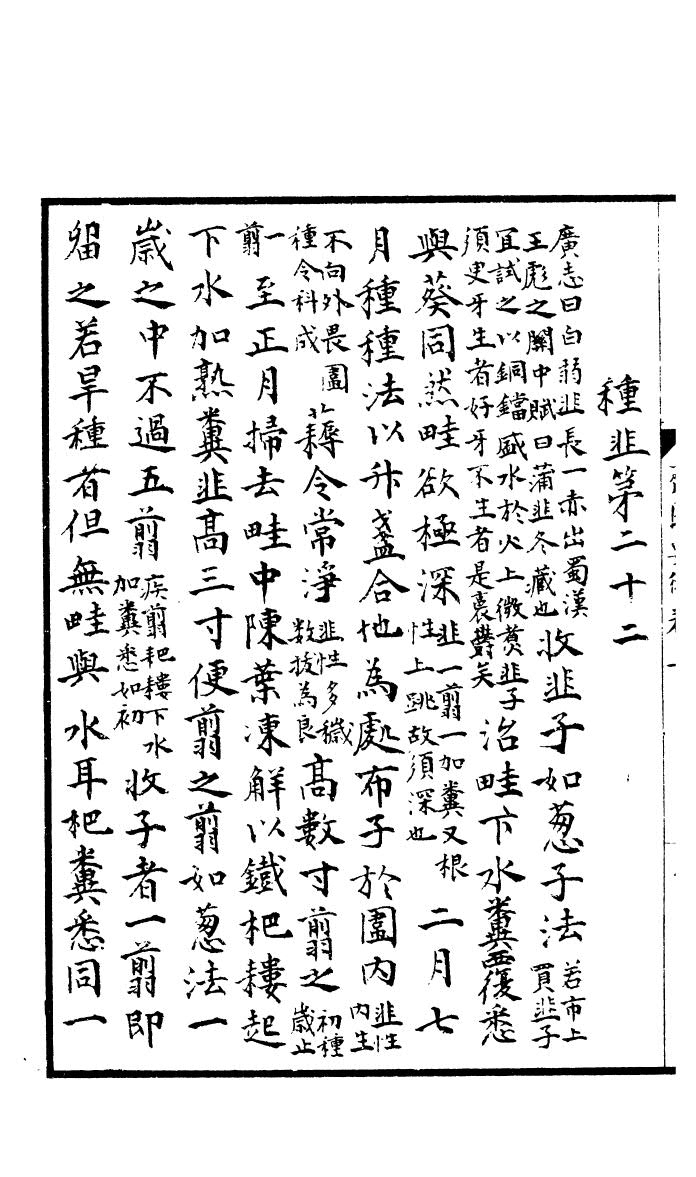 種韭第二十二
廣志曰白弱韭長一赤出蜀漢
王彪之關中賦曰蒲韭冬藏也
收韭子如葱子法
若市上
買韭子
宜試之以銅鐺盛水於火上微煑韭子
須臾牙生者好牙不生者是裛鬱矣
治畦下水糞覆悉
與葵同然畦欲極深
韭一翦一加糞又根
性上跳故須深也
二月七
月種種法以升盞合地為處布子於圍內
韭性
內生
不向外畏圍
種令科成
薅令常淨
韭性多穢
數拔為良
高數寸翦之
初種
歲止
一
翦
至正月掃去畦中陳葉凍解以鐵杷耬起
下水加熟糞韭高三寸便翦之翦如葱法一
歲之中不過五翦
疾翦杷耬下水
加糞悉如初
收子者一翦即
留之若旱種者但無畦與水耳杷糞悉同一